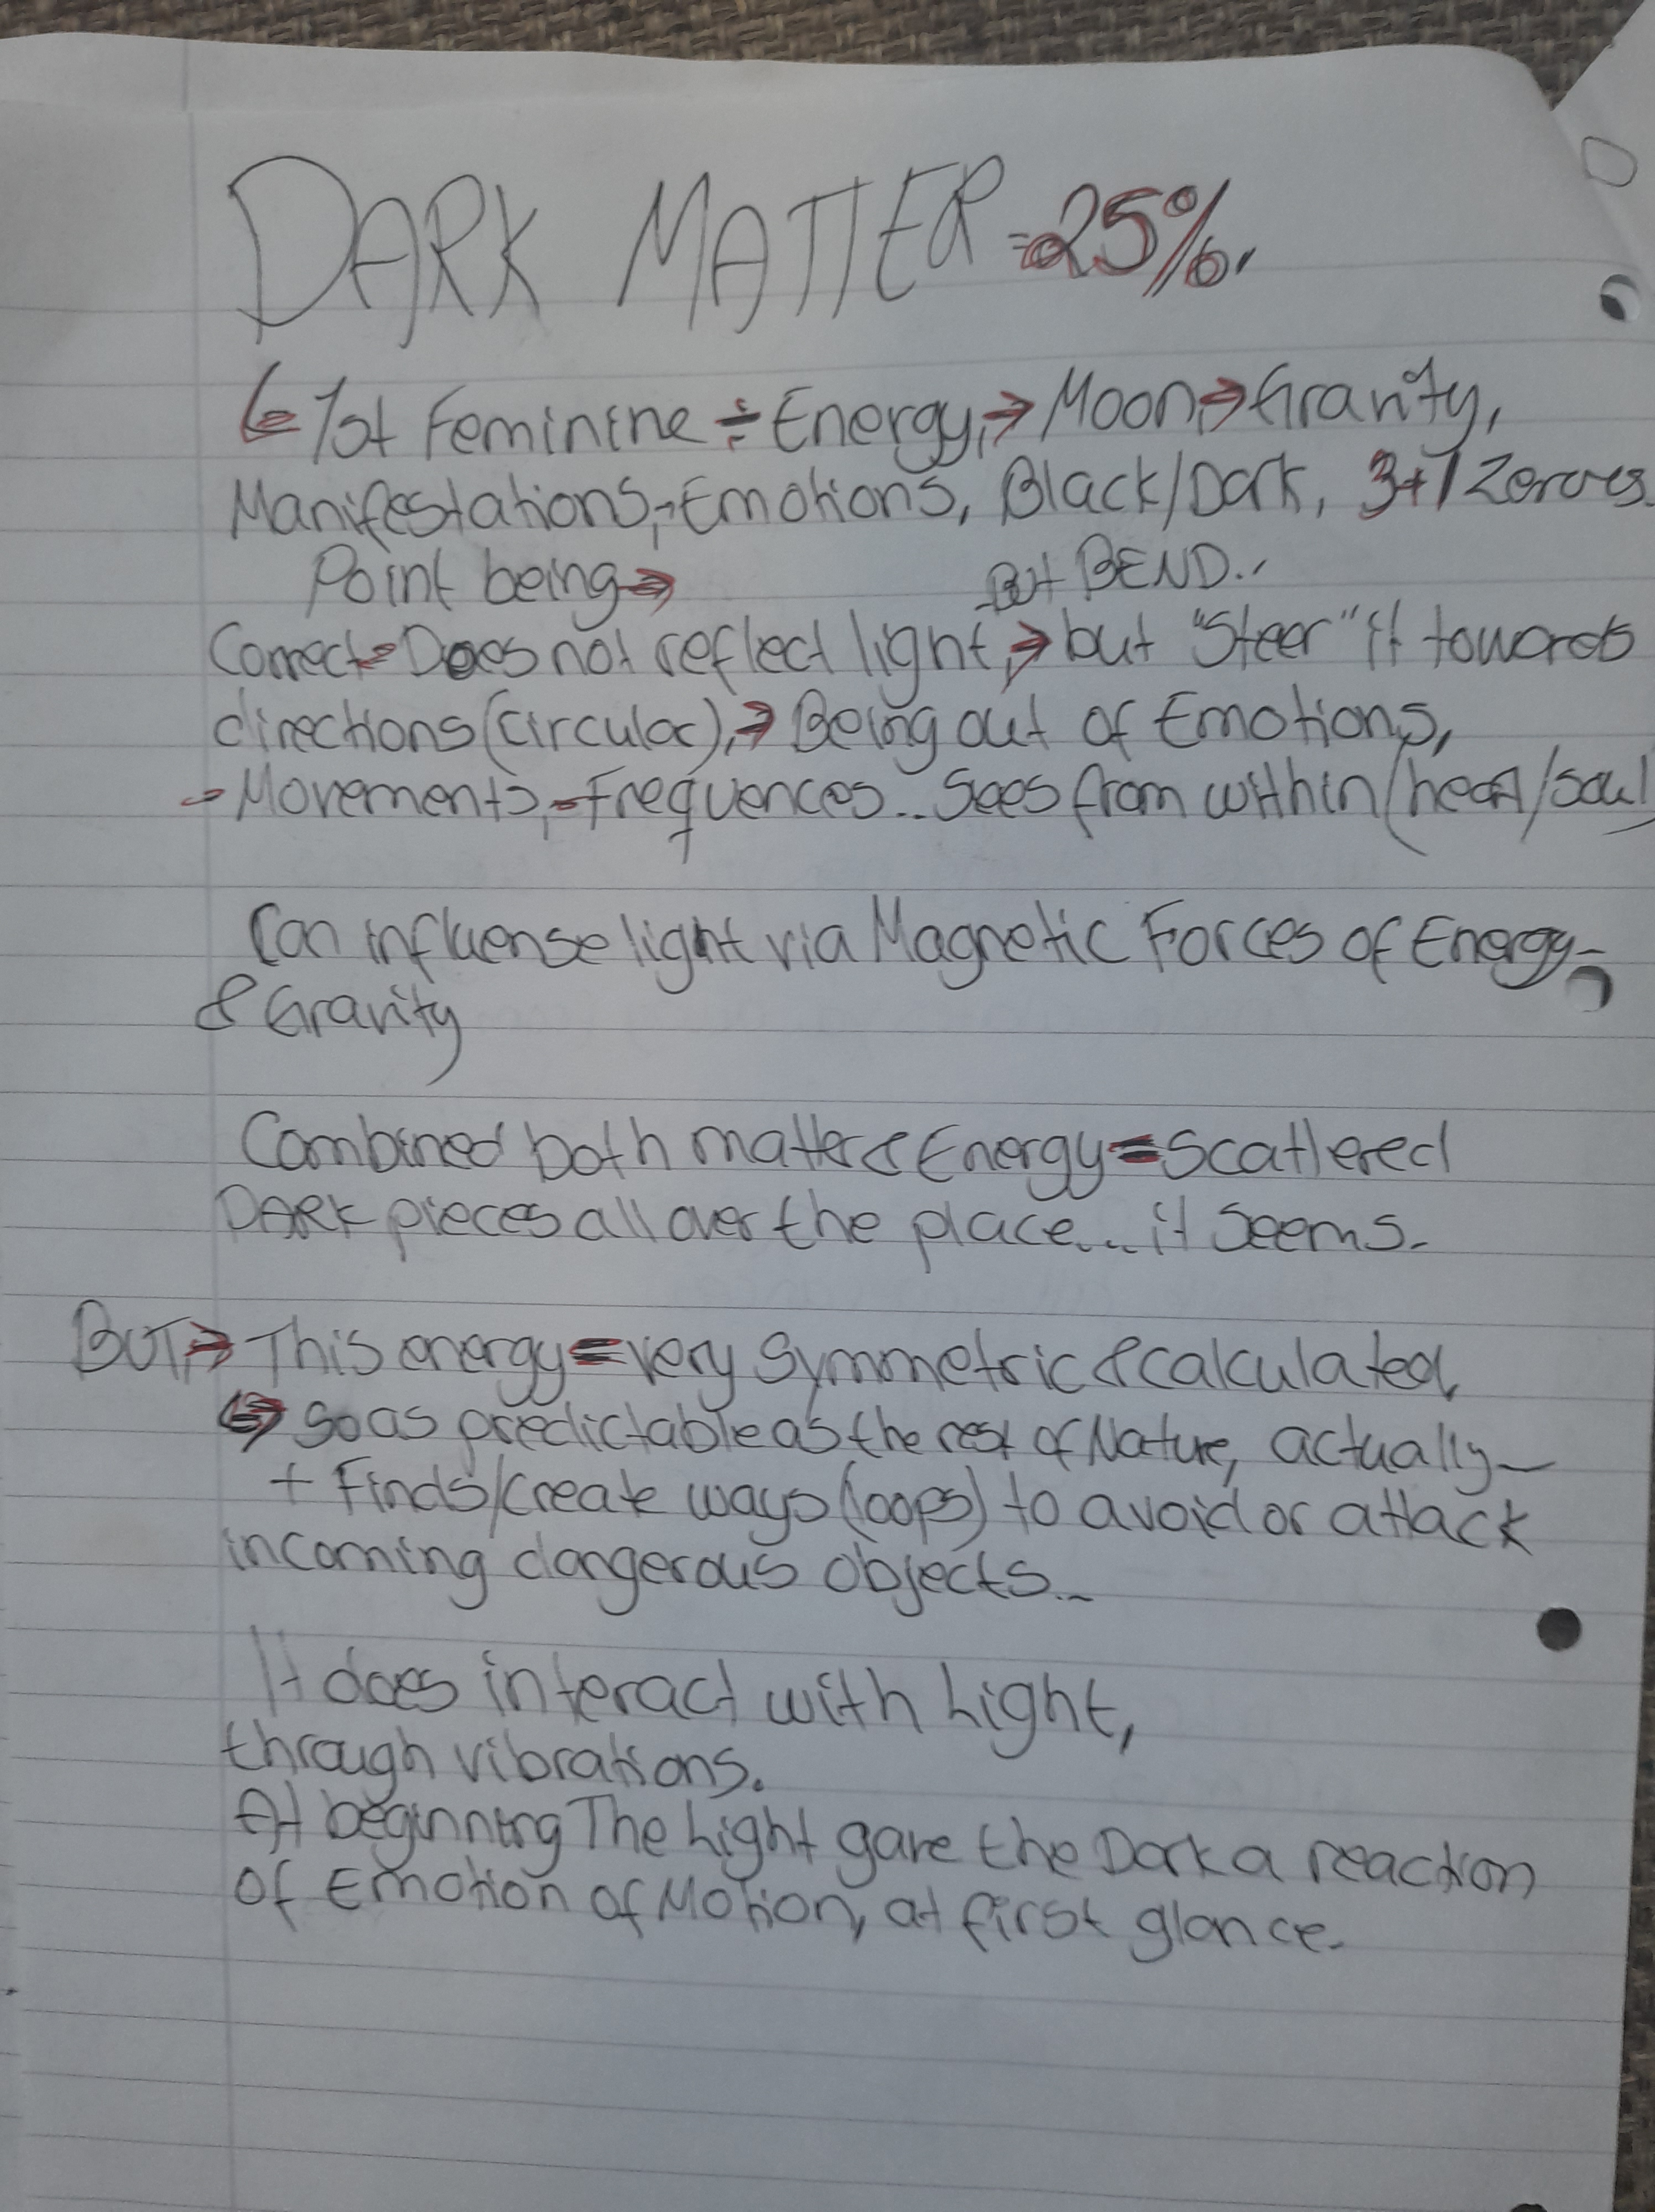 DARK MATTER = 25%.
1st Feminine ÷ Energy, → Moon, → Gravity,
Manifestations, - Emotions, Black/Dark, 3+1 Zeroes.
Point being →
But BEND..
Correct = Does not reflect light, → but "Steer" it towards
directions (circular), → Being out of Emotions,
- Movements, - Frequences.. Sees from within (heart/soul)
Can influense light via Magnetic Forces of Energy -
& Gravity
Combined both matter & Energy = Scattered
DARK pieces all over the place... it seems.
BUT, → This energy = very Symmetric & calculated,
↔ so as predictable as the rest of Nature, actually -
+ Finds/create ways (loops) to avoid or attack
incoming dangerous objects...
It does interact with Light,
through vibrations.
At beginning The Light gave the Dark a reaction
of Emotion of Motion, at first glance.